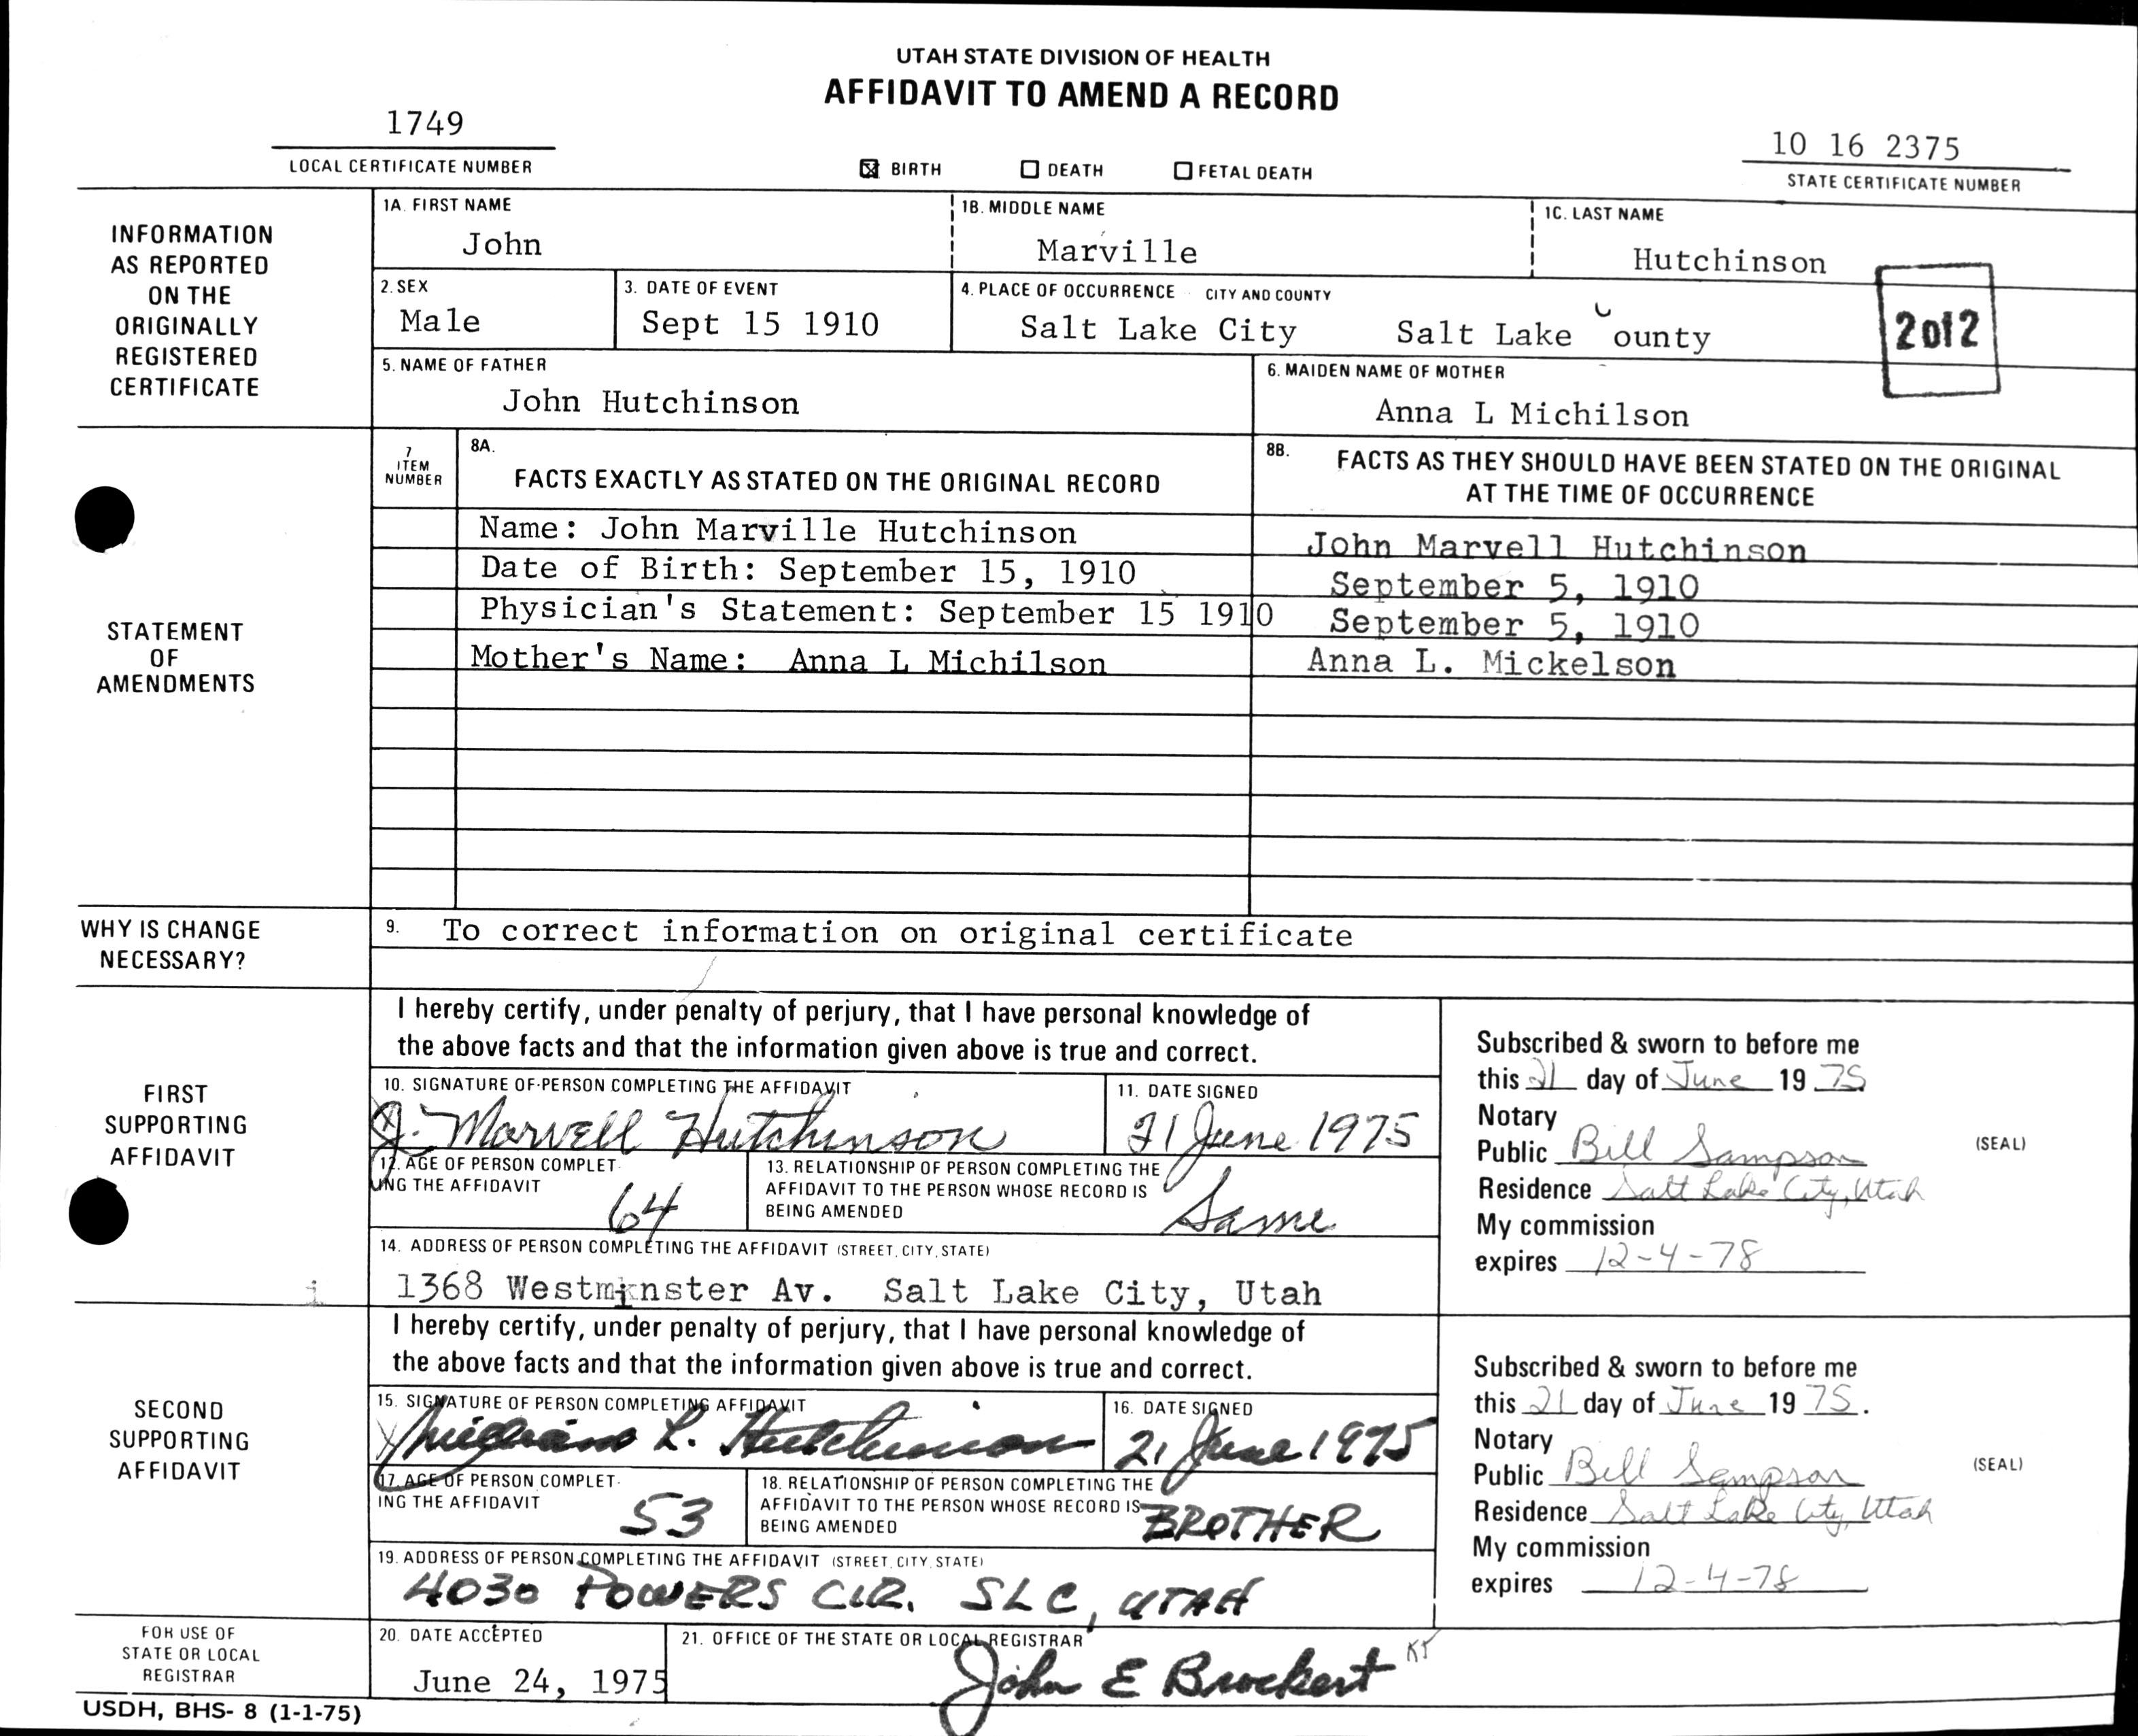 UTAH STATE DIVISION OF HEALTH
AFFIDAVIT TO AMEND A RECORD
1749
LOCAL CERTIFICATE NUMBER
☒ BIRTH ☐ DEATH ☐ FETAL DEATH
10 16 2375
STATE CERTIFICATE NUMBER
INFORMATION
AS REPORTED
ON THE
ORIGINALLY
REGISTERED
CERTIFICATE
1A. FIRST NAME 1B. MIDDLE NAME 1C. LAST NAME
John Marville Hutchinson
2. SEX 3. DATE OF EVENT 4. PLACE OF OCCURRENCE CITY AND COUNTY
Male Sept 15 1910 Salt Lake City Salt Lake County
2of2
5. NAME OF FATHER 6. MAIDEN NAME OF MOTHER
John Hutchinson Anna L Michilson
STATEMENT
OF
AMENDMENTS
7
ITEM
NUMBER
8A.
FACTS EXACTLY AS STATED ON THE ORIGINAL RECORD
8B. FACTS AS THEY SHOULD HAVE BEEN STATED ON THE ORIGINAL
AT THE TIME OF OCCURRENCE
Name: John Marville Hutchinson John Marvell Hutchinson
Date of Birth: September 15, 1910 September 5, 1910
Physician's Statement: September 15 1910 September 5, 1910
Mother's Name: Anna L Michilson Anna L. Mickelson
WHY IS CHANGE
NECESSARY?
9. To correct information on original certificate
FIRST
SUPPORTING
AFFIDAVIT
I hereby certify, under penalty of perjury, that I have personal knowledge of
the above facts and that the information given above is true and correct.
10. SIGNATURE OF PERSON COMPLETING THE AFFIDAVIT 11. DATE SIGNED
J. Marvell Hutchinson 21 June 1975
12. AGE OF PERSON COMPLET-
ING THE AFFIDAVIT
64
13. RELATIONSHIP OF PERSON COMPLETING THE
AFFIDAVIT TO THE PERSON WHOSE RECORD IS
BEING AMENDED
Same
14. ADDRESS OF PERSON COMPLETING THE AFFIDAVIT (STREET, CITY, STATE)
i 1368 Westminster Av. Salt Lake City, Utah
Subscribed & sworn to before me
this 21 day of June 19 75
Notary
Public Bill Sampson (SEAL)
Residence Salt Lake City, Utah
My commission
expires 12-4-78
SECOND
SUPPORTING
AFFIDAVIT
I hereby certify, under penalty of perjury, that I have personal knowledge of
the above facts and that the information given above is true and correct.
15. SIGNATURE OF PERSON COMPLETING AFFIDAVIT 16. DATE SIGNED
X William L. Hutchinson 21 June 1975
17. AGE OF PERSON COMPLET-
ING THE AFFIDAVIT
53
18. RELATIONSHIP OF PERSON COMPLETING THE
AFFIDAVIT TO THE PERSON WHOSE RECORD IS
BEING AMENDED
BROTHER
19. ADDRESS OF PERSON COMPLETING THE AFFIDAVIT (STREET, CITY, STATE)
4030 POWERS CIR. SLC, UTAH
Subscribed & sworn to before me
this 21 day of June 19 75.
Notary
Public Bill Sampson (SEAL)
Residence Salt Lake City, Utah
My commission
expires 12-4-78
FOR USE OF
STATE OR LOCAL
REGISTRAR
20. DATE ACCEPTED 21. OFFICE OF THE STATE OR LOCAL REGISTRAR
June 24, 1975 John E Brockert KT
USDH, BHS- 8 (1-1-75)